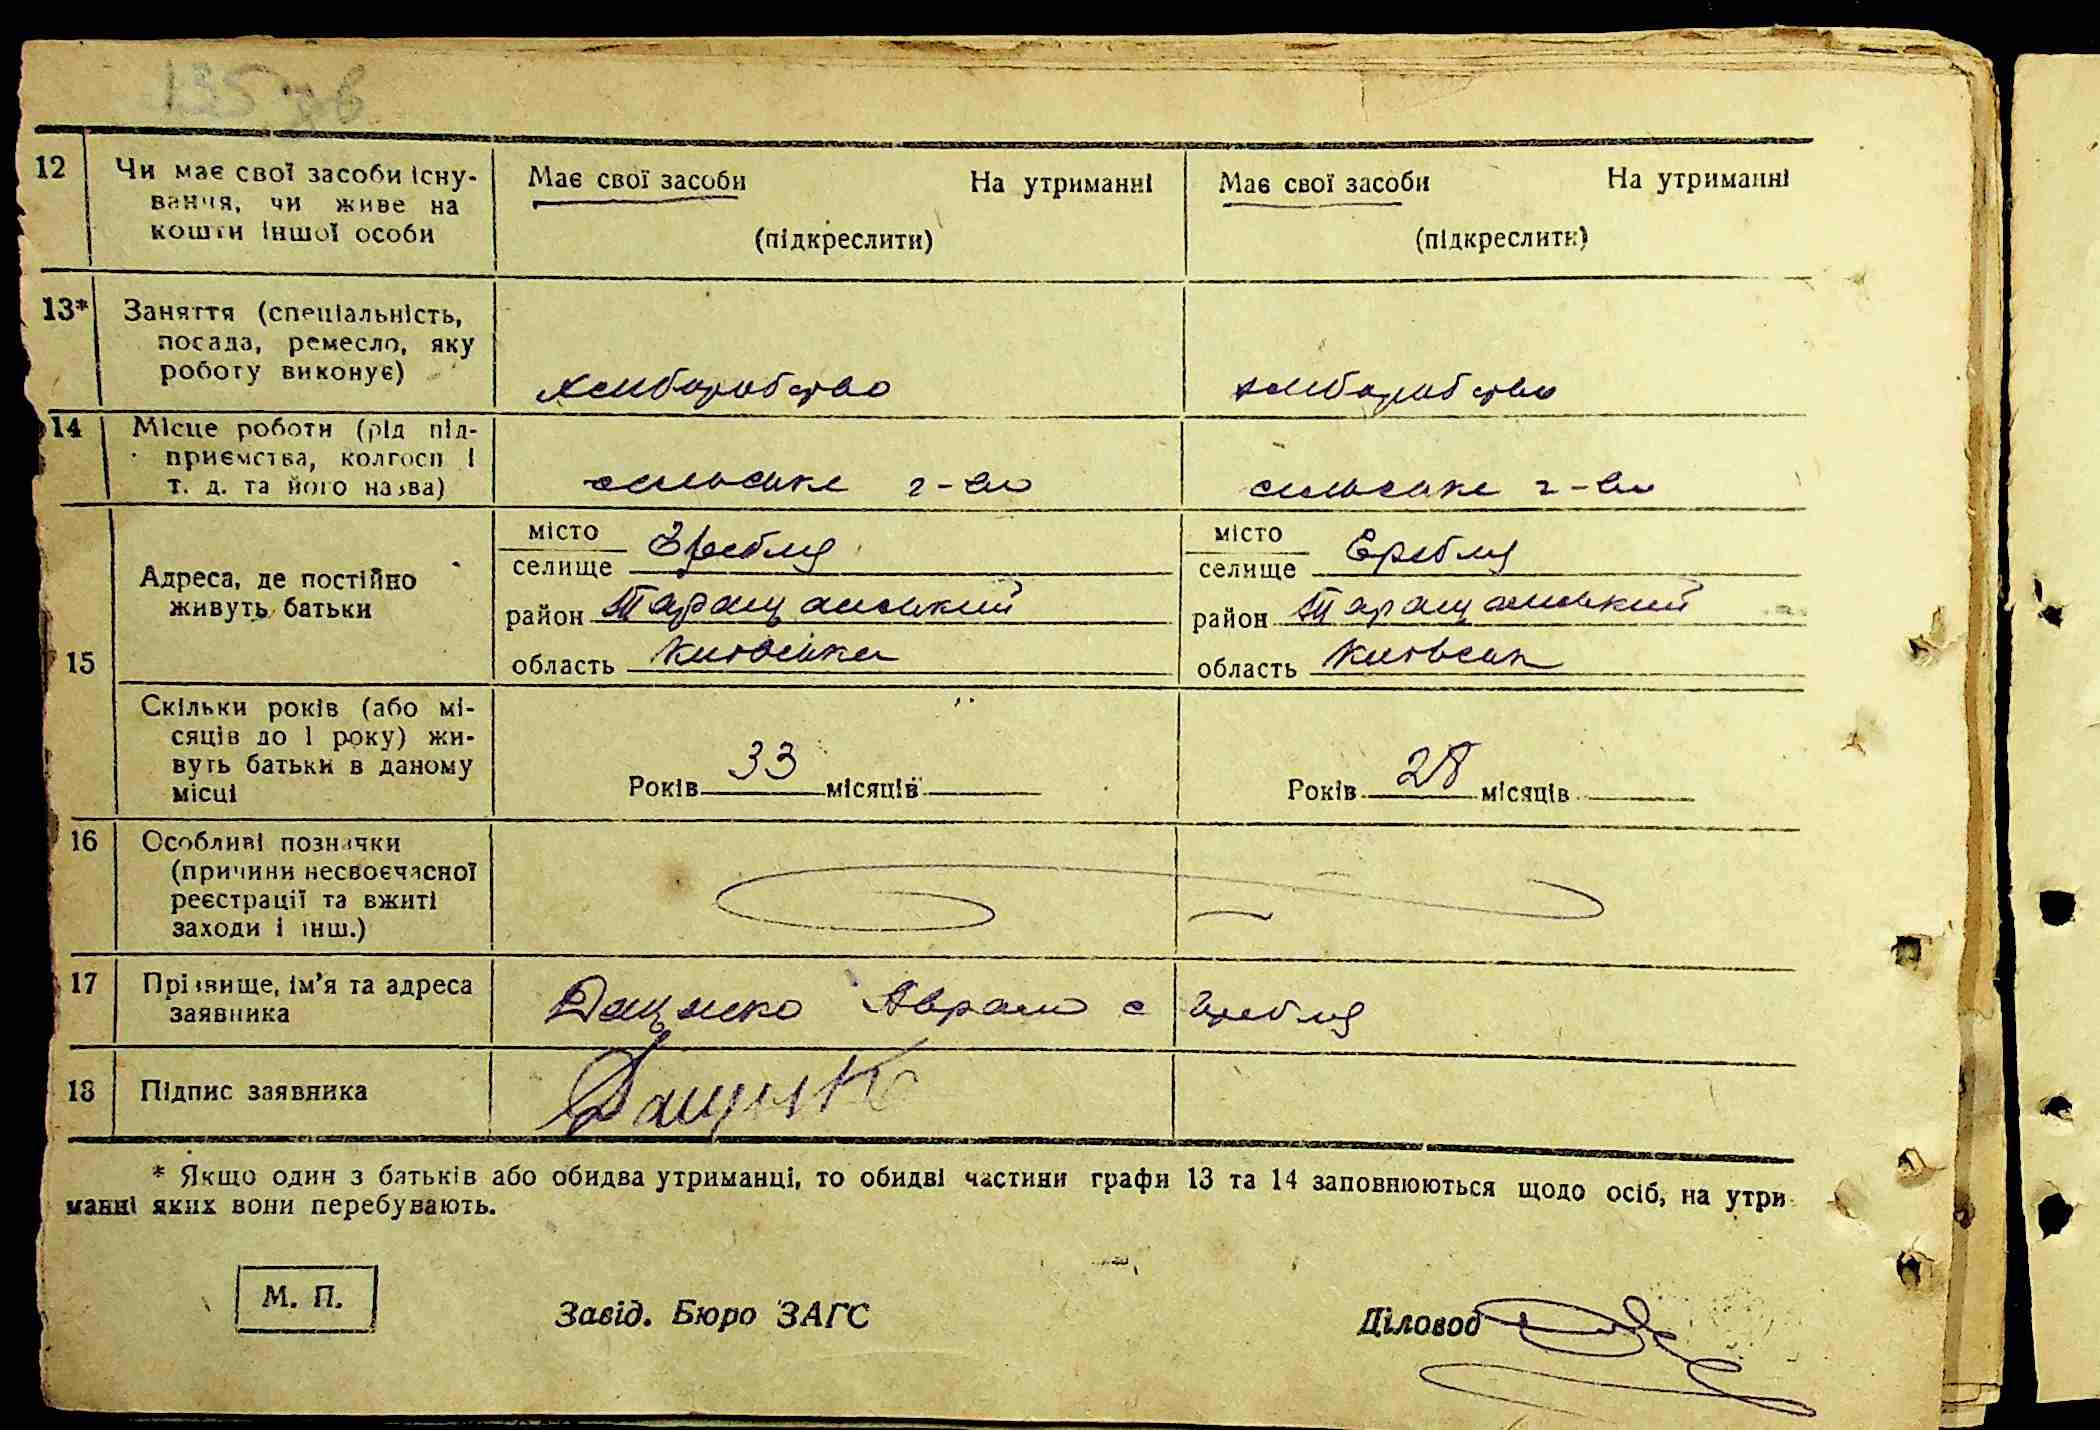 135 зв
12 Чи має свої засоби існу-
вання, чи живе на
кошти іншої особи
Має свої засоби На утриманні
(підкреслити)
Має свої засоби На утриманні
(підкреслити)
13* Заняття (спеціальність,
посада, ремесло, яку
роботу виконує)
хліборобство
хліборобство
14 Місце роботи (рід під-
приємства, колгосп і
т. д. та його назва)
сільське г-во
сільське г-во
15 Адреса, де постійно
живуть батьки
місто
селище Гребля
район Таращанський
область Київська
місто
селище Гребля
район Таращанський
область Київськ
Скільки років (або мі-
сяців до 1 року) жи-
вуть батьки в даному
місці
Років 33 місяців
Років 28 місяців
16 Особливі позначки
(причини несвоєчасної
реєстрації та вжиті
заходи і інш.)
17 Прізвище, ім'я та адреса
заявника
Даценко Аврам с Гребля
18 Підпис заявника
Даценко
* Якщо один з батьків або обидва утриманці, то обидві частини графи 13 та 14 заповнюються щодо осіб, на утри-
манні яких вони перебувають.
М. П.
Завід. Бюро ЗАГС
Діловод